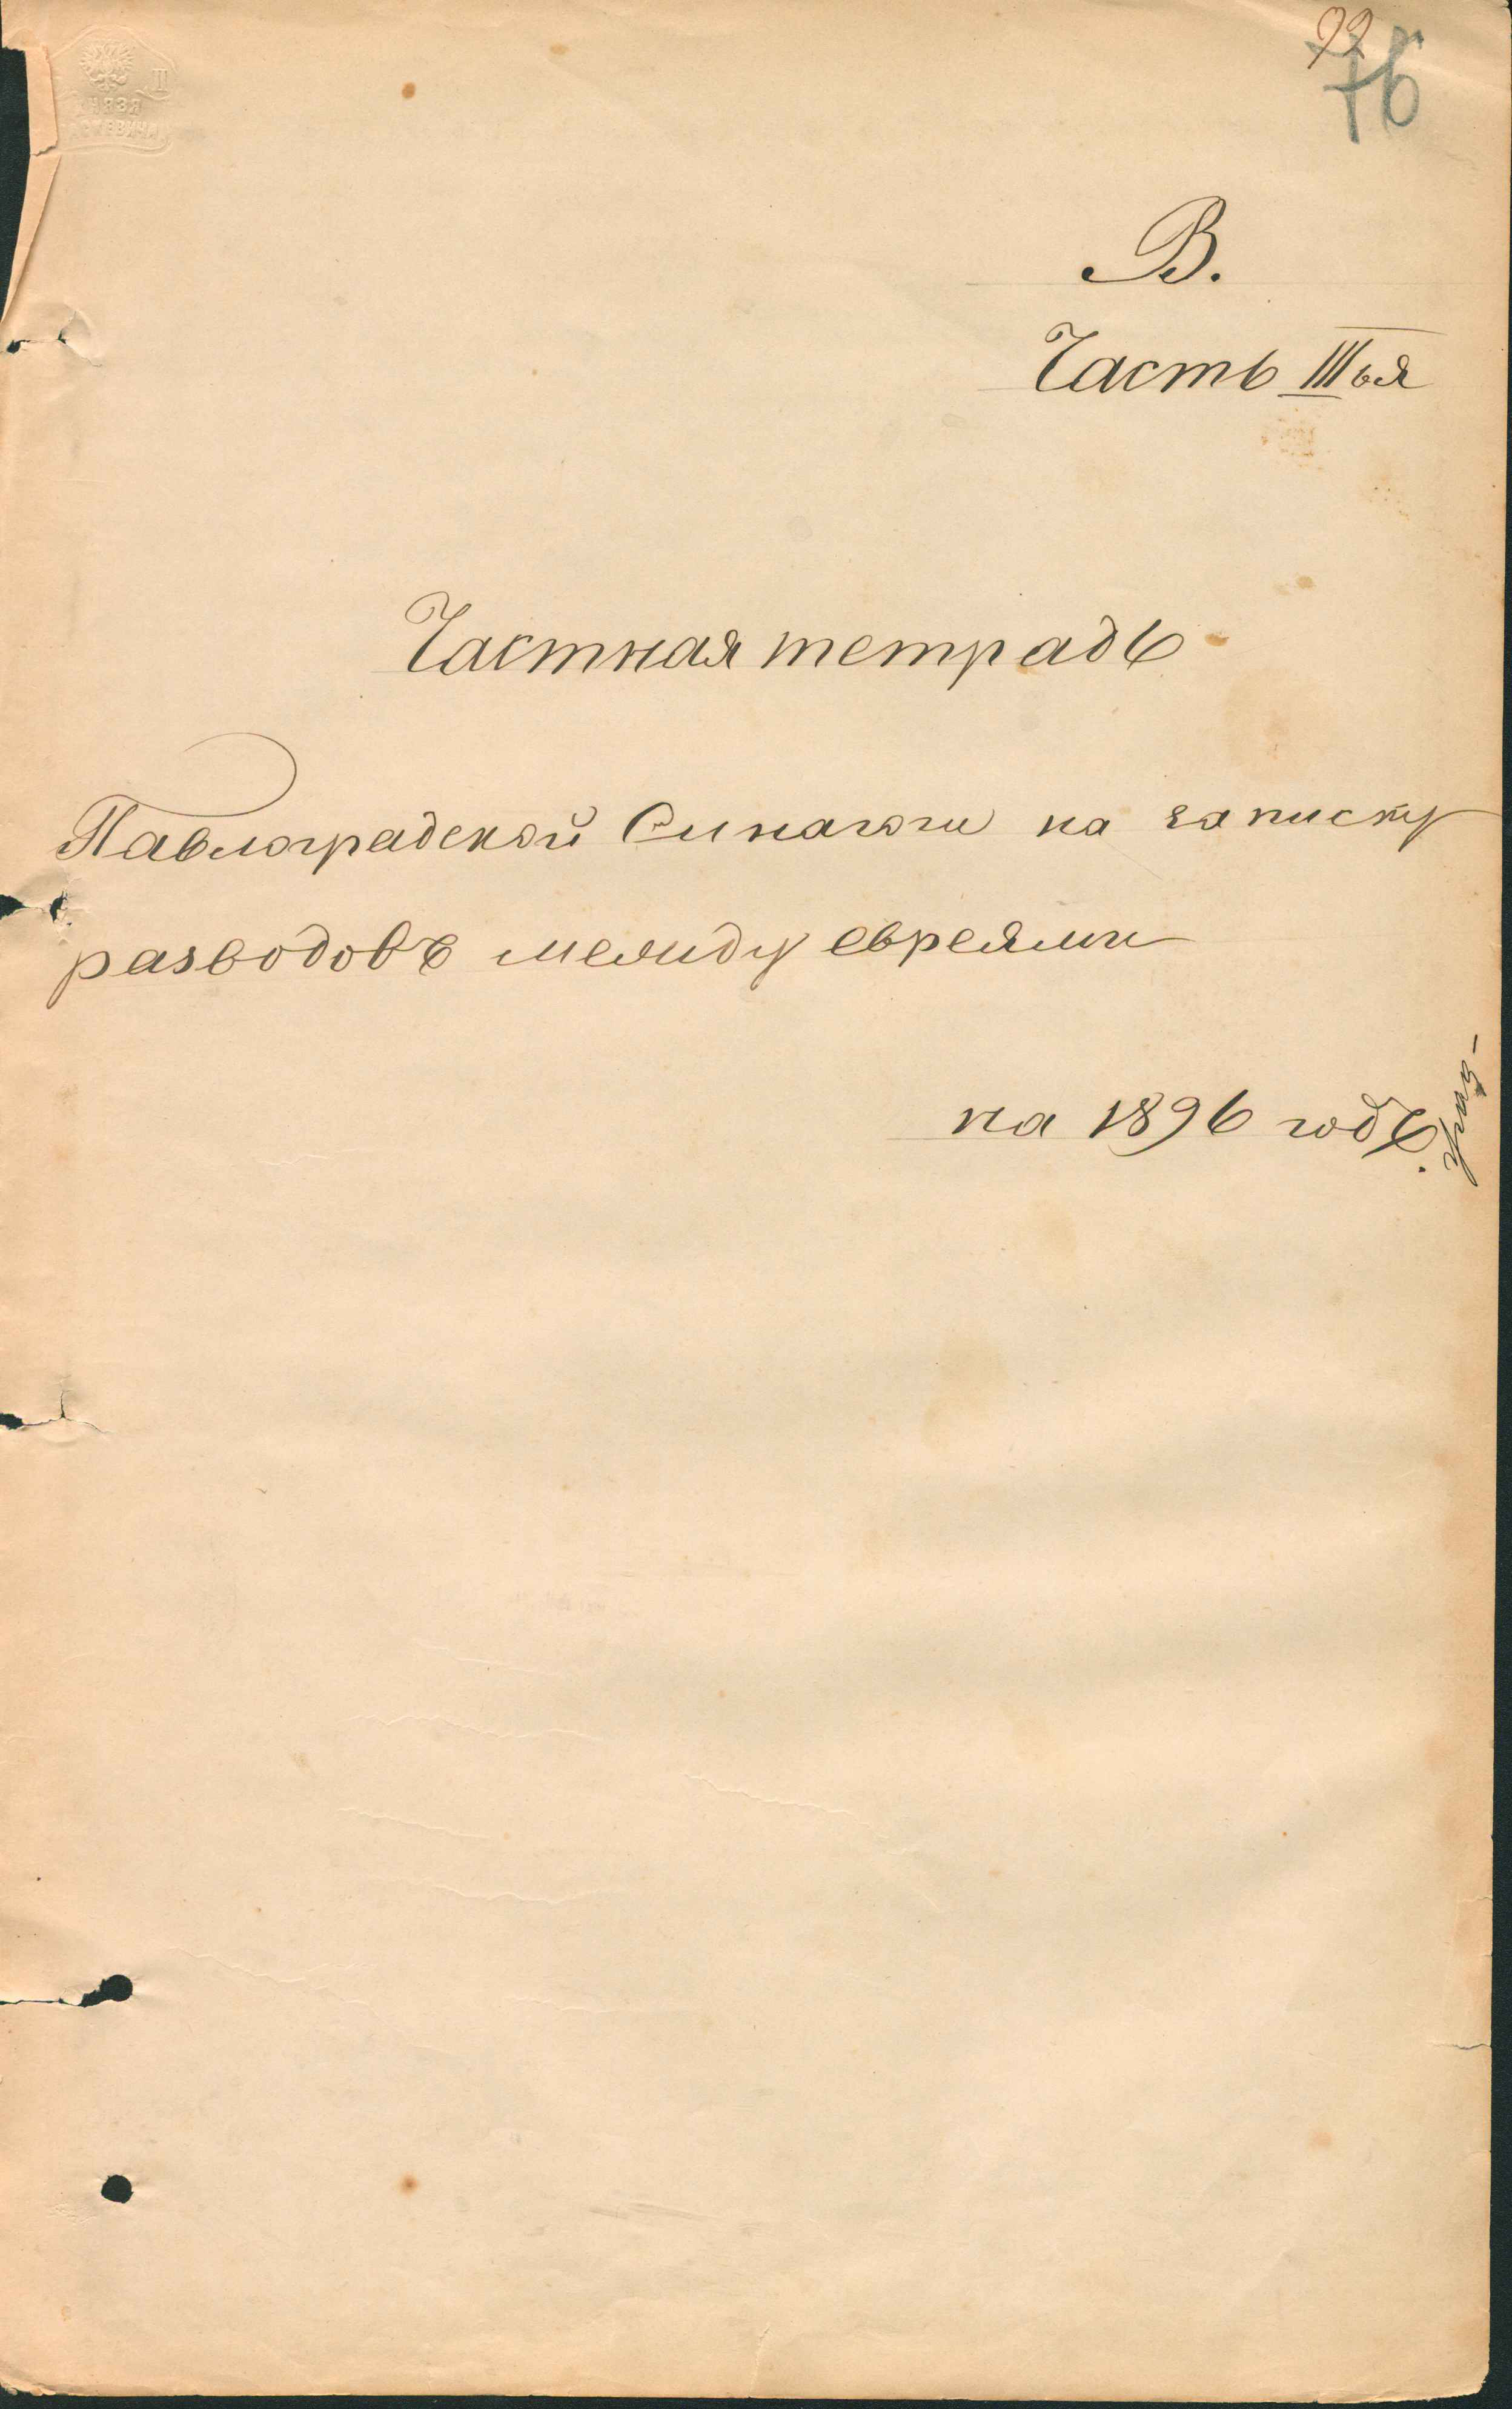 76
В.
Часть IIIья
Частная тетрадь
Павлоградской Синагоги на записку
разводовъ между евреями
на 1896 годъ.